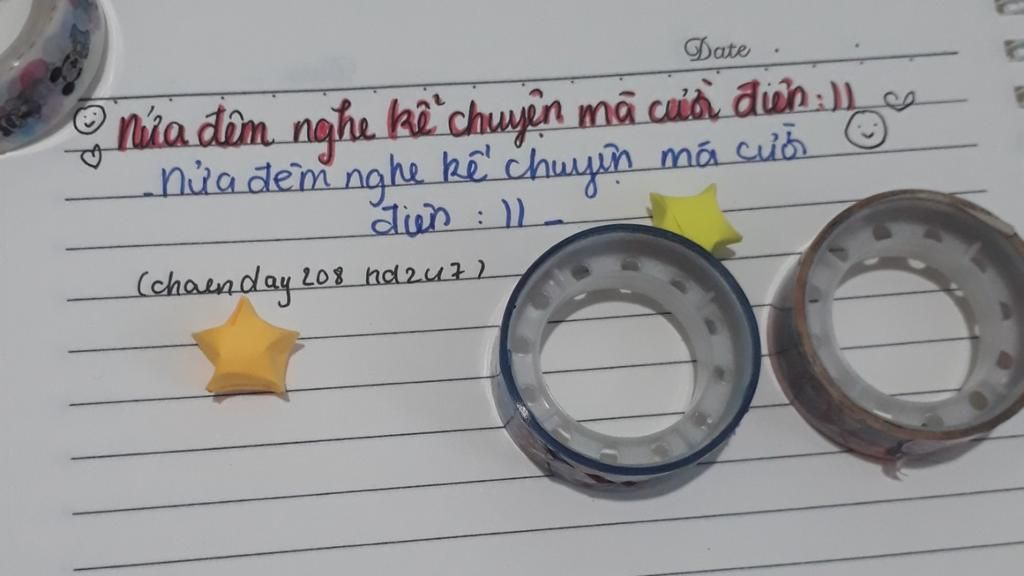 Date
Nửa đêm nghe kể chuyện mà cười điên :))
- Nửa đêm nghe kể chuyện mà cười
điên : )) -
(chaenday208 nd2u7)